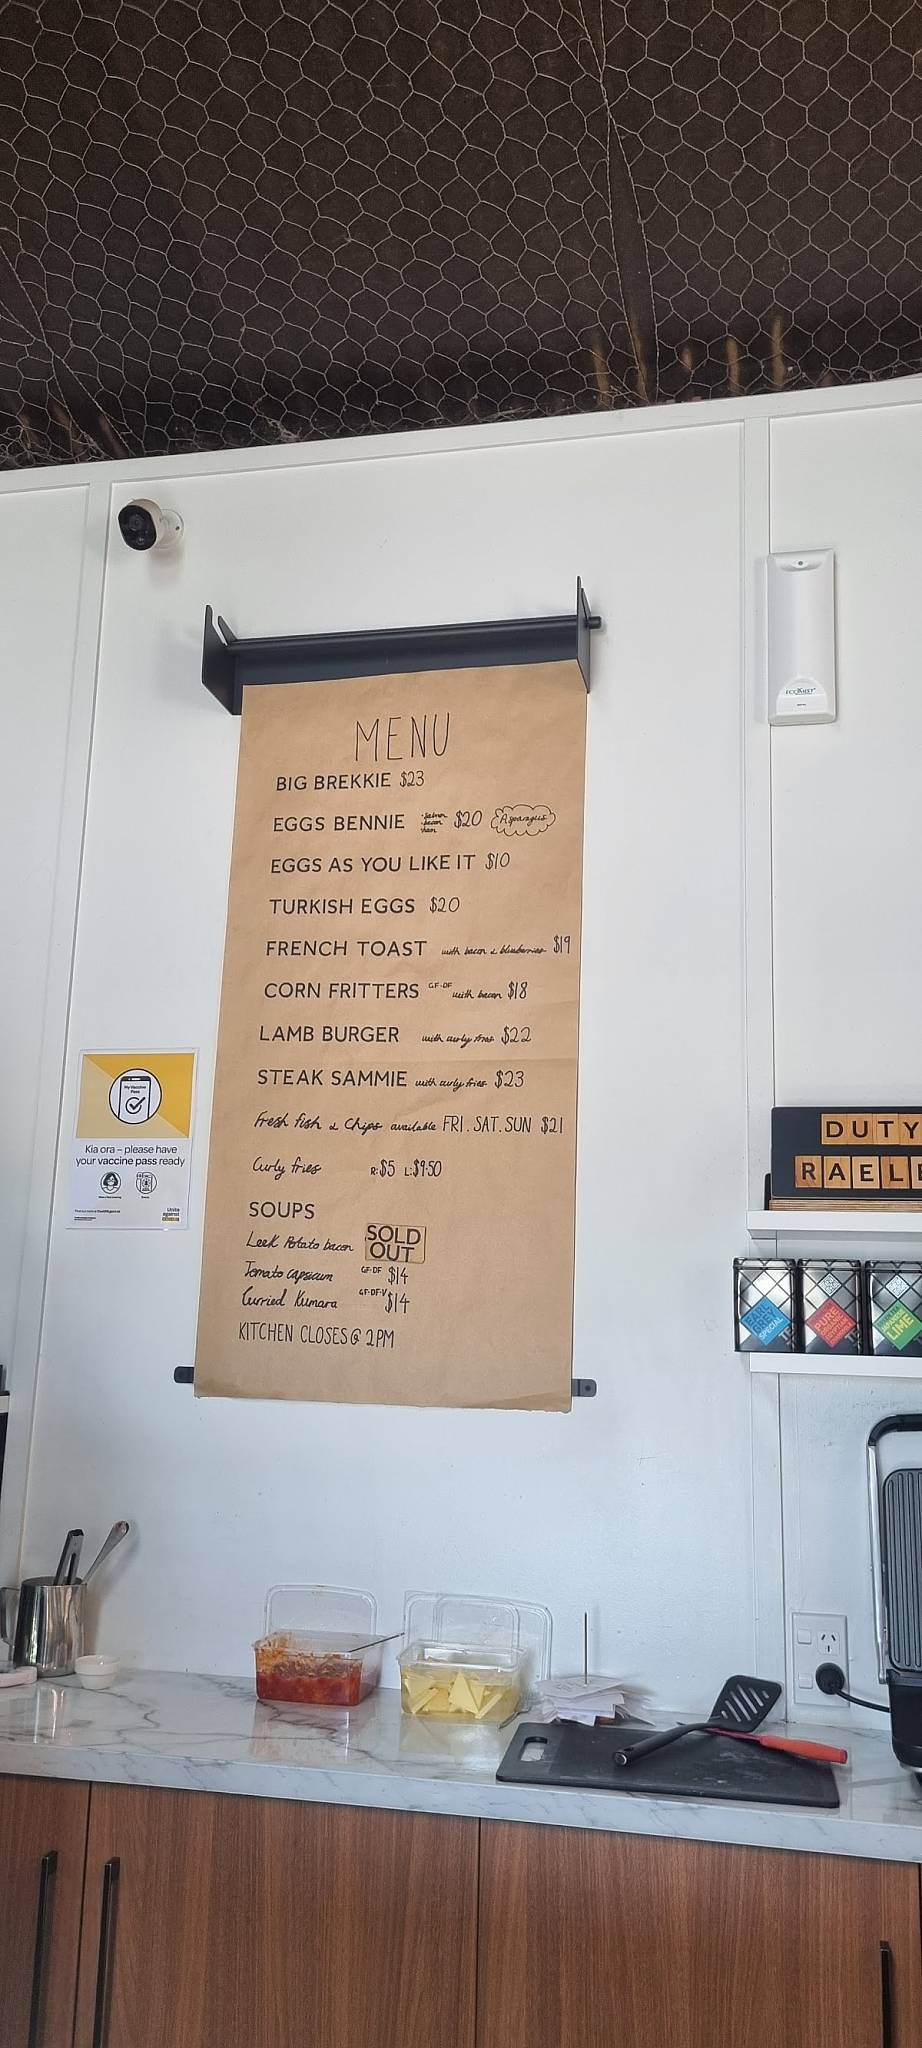 MENU
BIG BREKKIE $23
EGGS BENNIE salmon bacon ham $20 Asparagus
EGGS AS YOU LIKE IT $10
TURKISH EGGS $20
FRENCH TOAST with bacon & blueberries $19
CORN FRITTERS GF-DF with bacon $18
LAMB BURGER with curly fries $22
STEAK SAMMIE with curly fries $23
Fresh fish & Chips available FRI. SAT. SUN $21
Curly fries R:$5 L:$9.50
SOUPS
Leek Potato bacon SOLD OUT
Tomato capsicum GF-DF $14
Curried Kumara GF-DF-V $14
KITCHEN CLOSES @ 2PM
My Vaccine Pass
Kia ora – please have
your vaccine pass ready
Unite
against
ECOMIST
DUTY
RAELE
EARL GREY SPECIAL
PURE
JAPANESE LIME